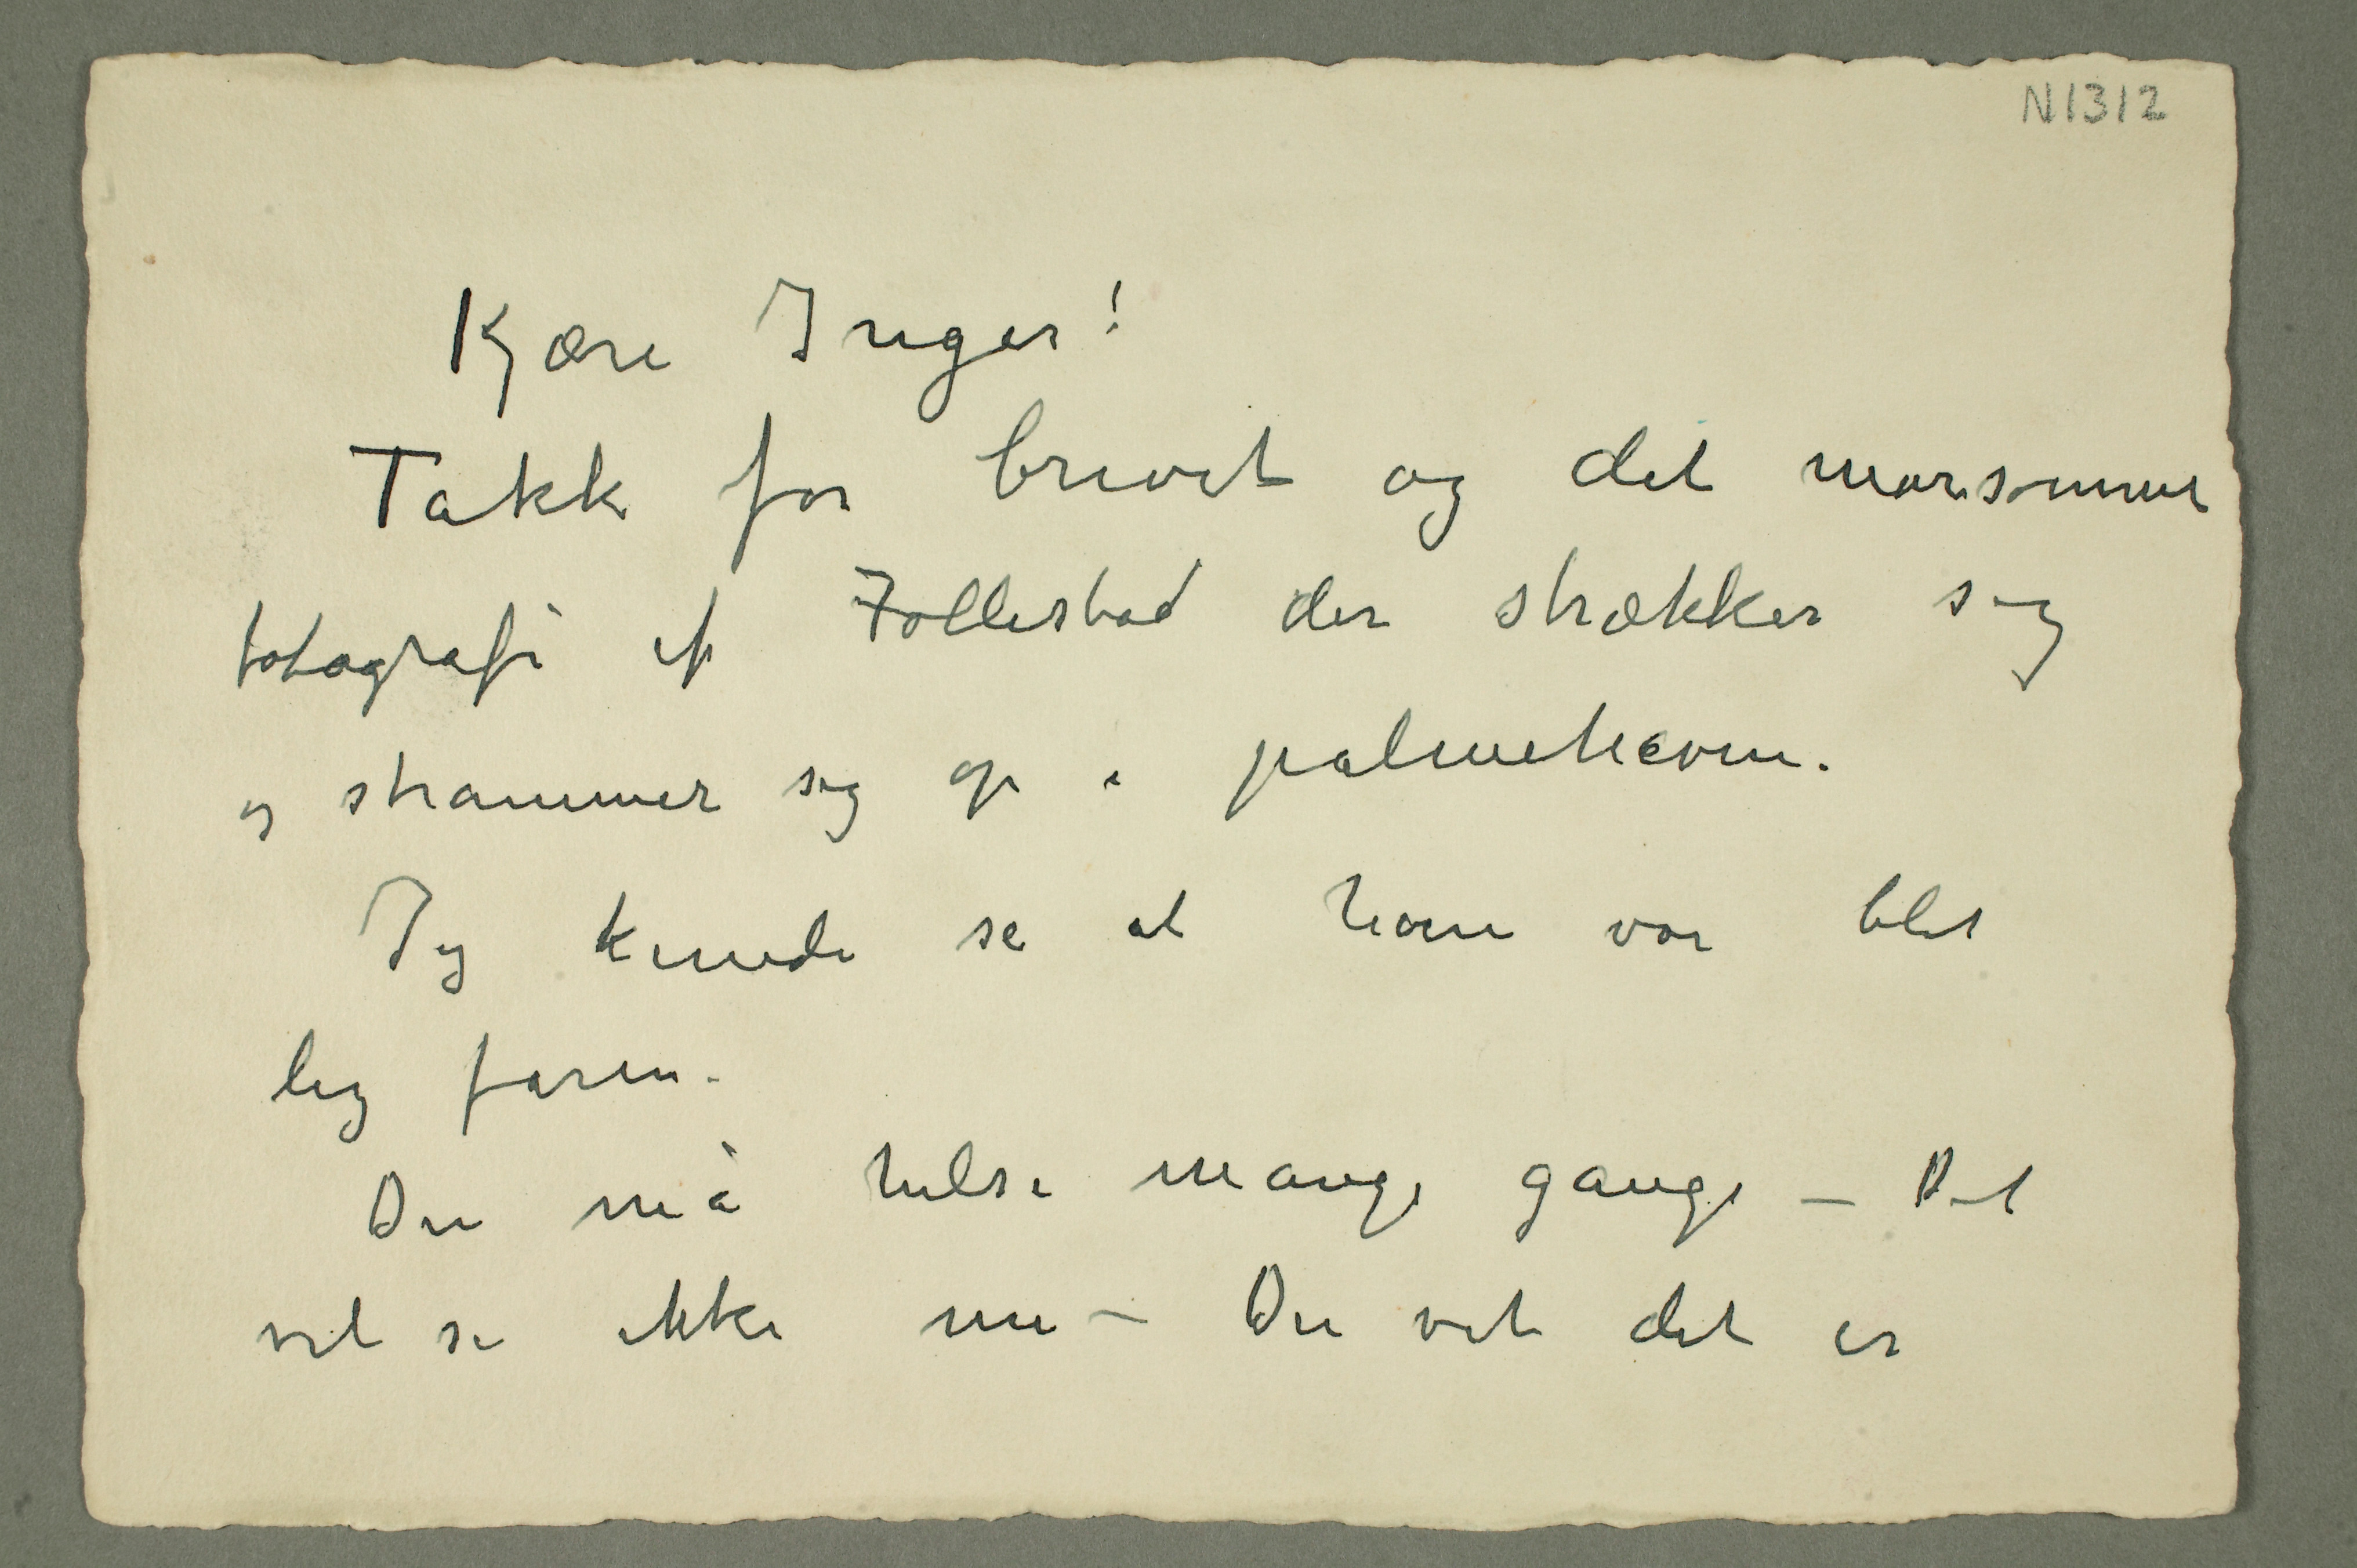 N1312
Kjære Inger!
Takk for brevet og det morsomme
fotografi af Follestad der strækker sig
og strammer sig op i palmehaven.
Jeg kunde se at han var blet
lig faren.
Du må hilse mange gange – Det
vil si ikke nu – Du vet det er